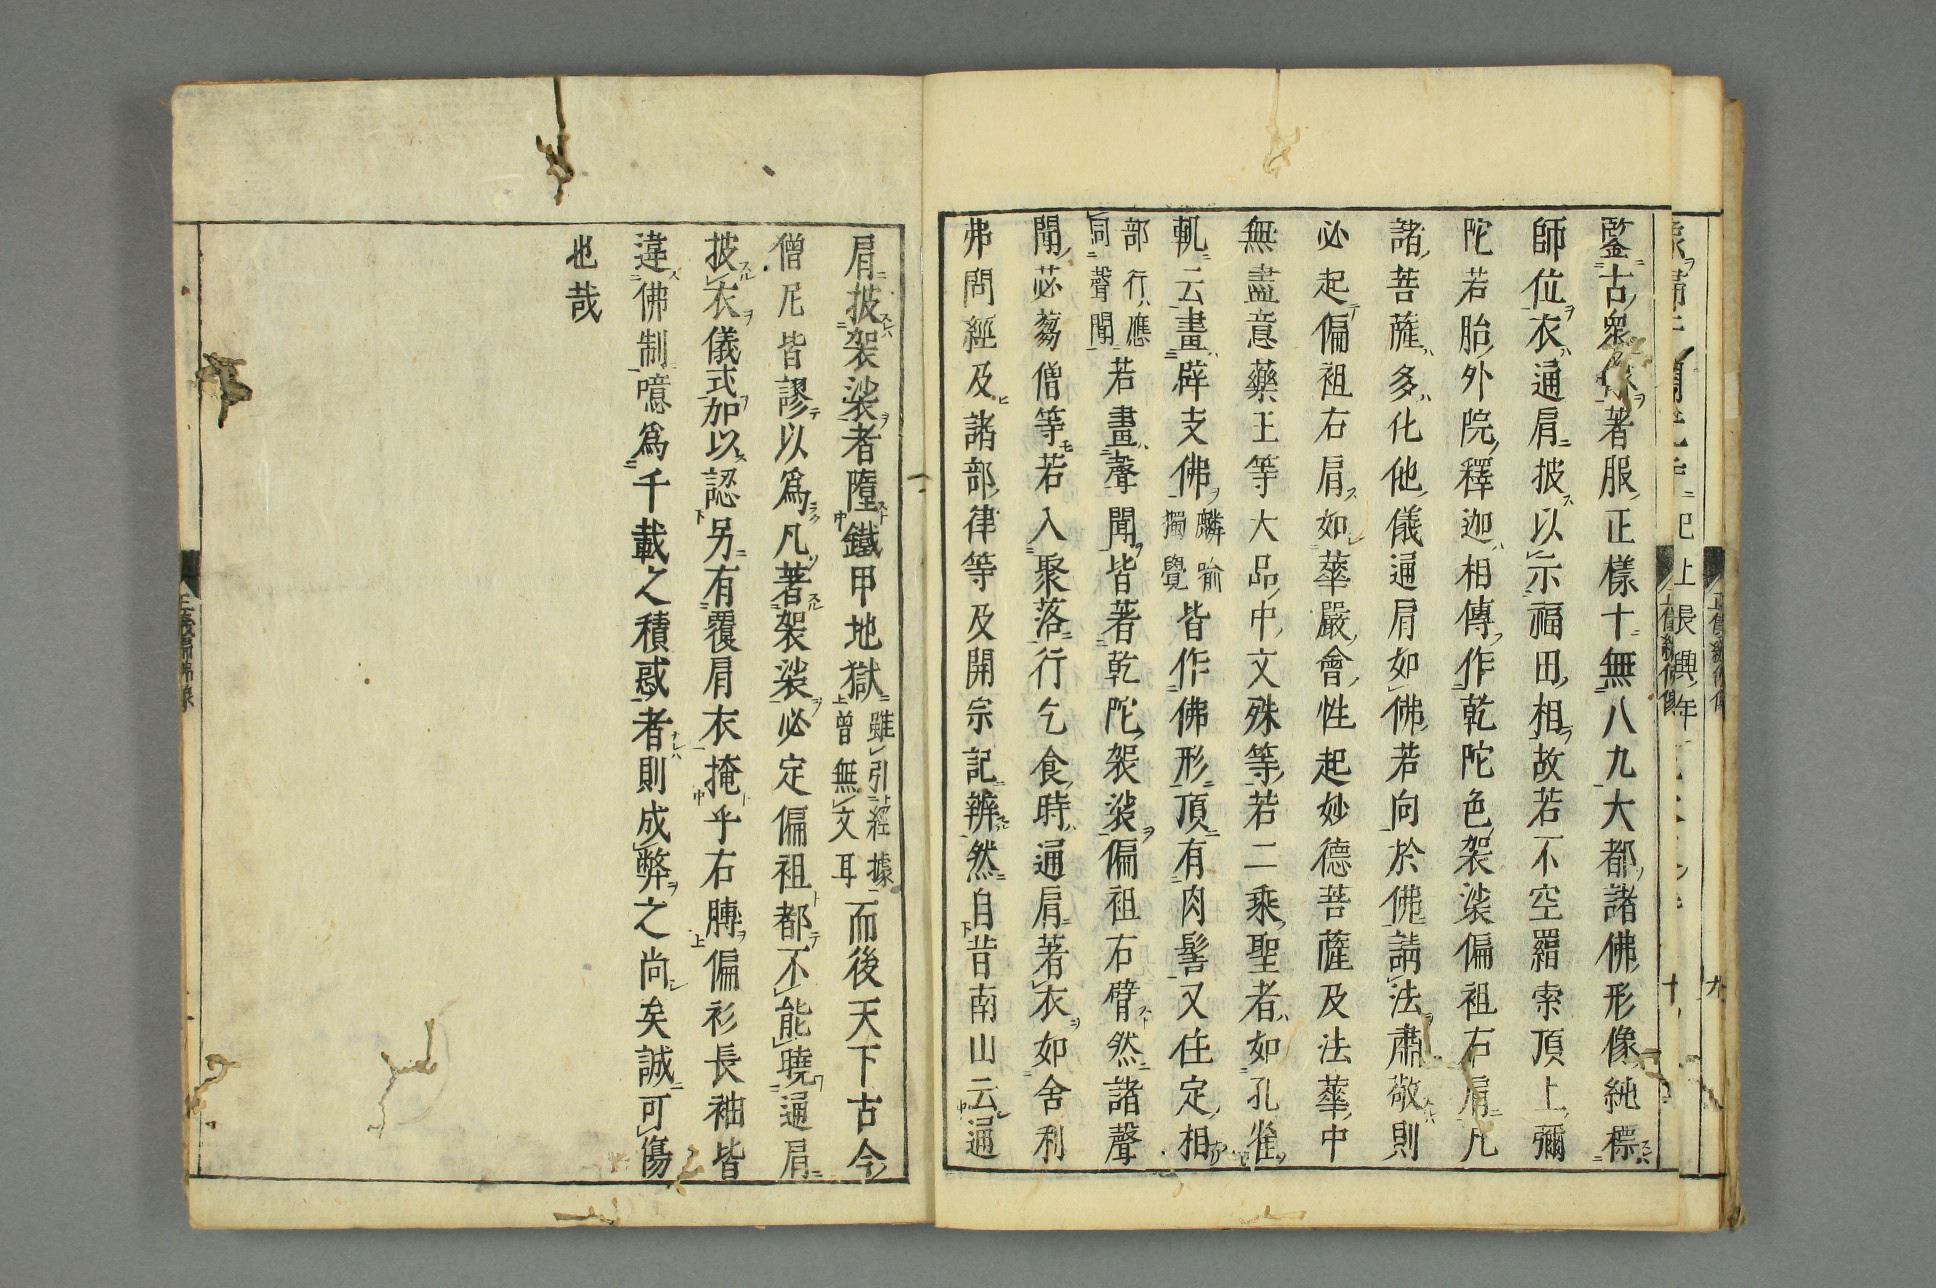 鑒古衆像著服正樣十無八九大都諸佛形像純標
師位衣通肩披以示福田相故若不空羂索頂上彌
陀若胎外院釋迦相傳作乾陀色袈裟偏袒右肩凡
諸菩薩多化他儀通肩如佛若向於佛請法肅敬則
必起偏袒右肩如華嚴會性起妙德菩薩及法華中
無盡意藥王等大品中文殊等若二乘聖者如孔雀
軌云畫辟支佛麟喻獨覺皆作佛形頂有肉髻又住定相
部行應同聲聞若畫聲聞皆著乾陀袈裟偏袒右臂然諸聲
聞苾蒭僧等若入聚落行乞食時通肩著衣如舍利
弗問經及諸部律等及開宗記辨然自昔南山云通
肩披袈裟者墮鐵甲地獄雖引經據曾無文耳而後天下古今
僧尼皆謬以爲凡著袈裟必定偏袒都不能曉通肩
披衣儀式加以認另有覆肩衣掩乎右膊偏衫長袖皆
違佛制噫爲千載之積惑者則成弊之尚矣誠可傷
也哉